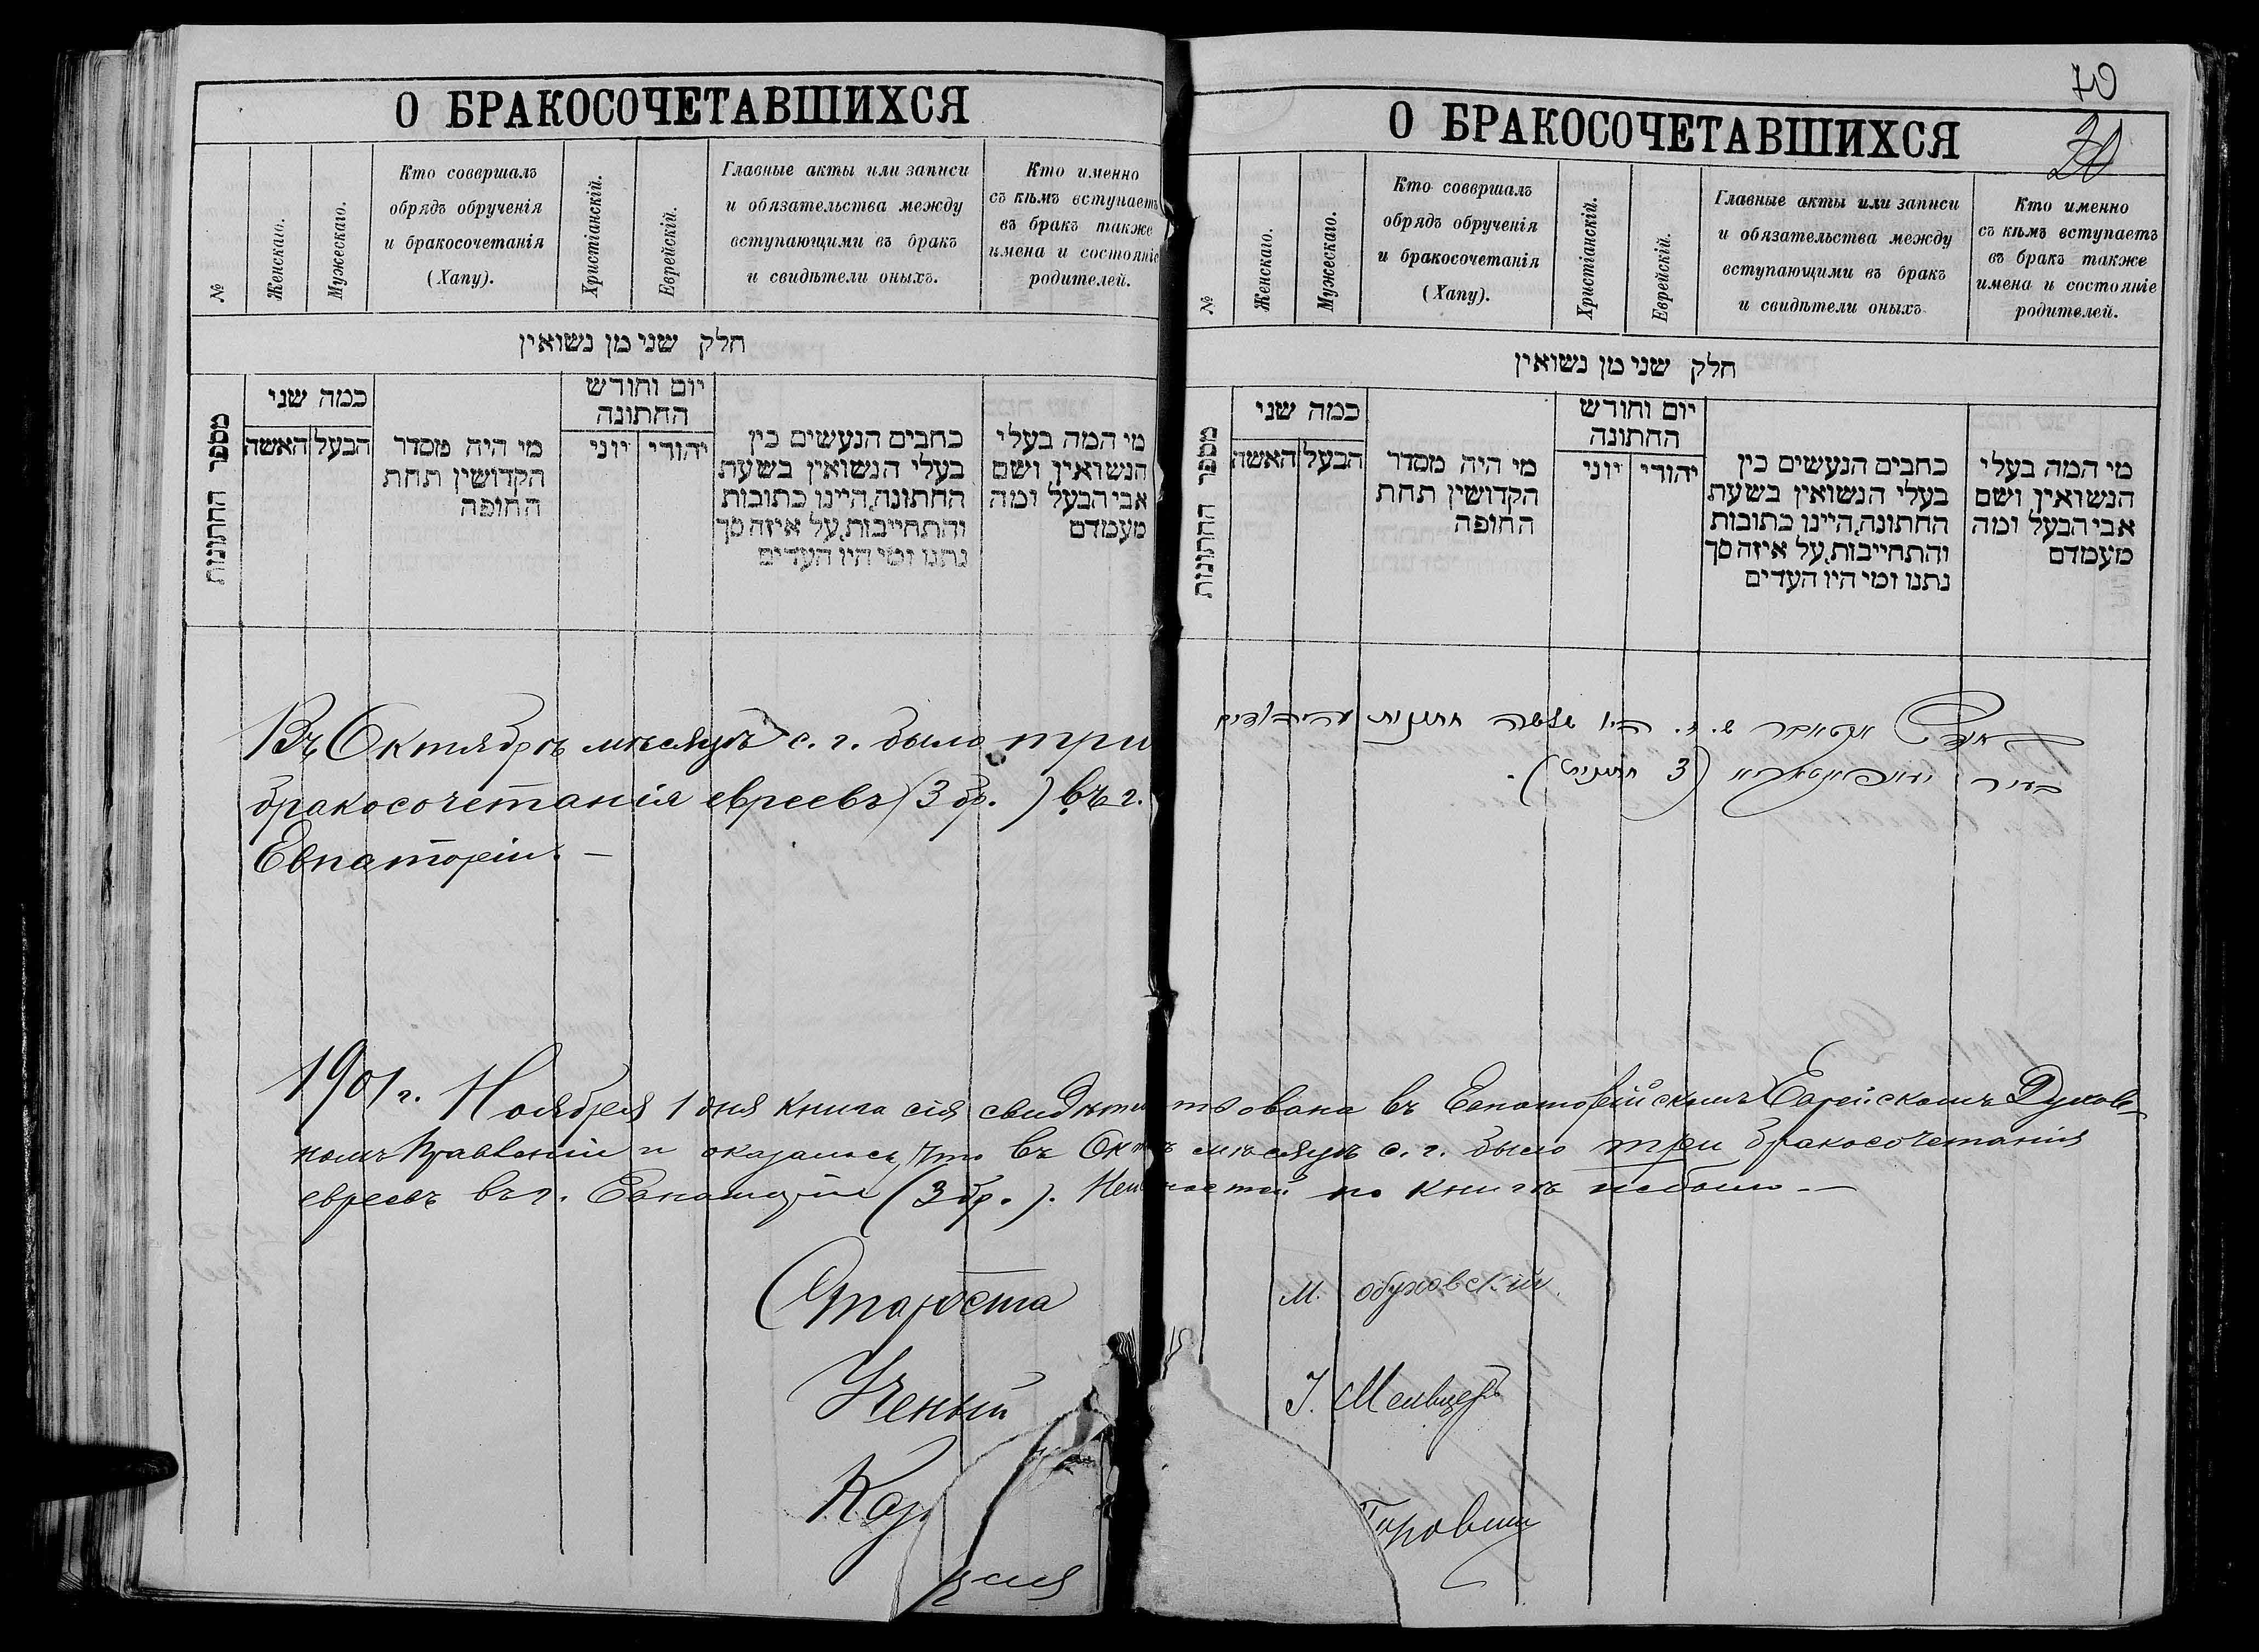 О БРАКОСОЧЕТАВШИХСЯ
№
Женскаго.
Мужескаго.
Кто совершалъ
обрядъ обрученія
и бракосочетанія
(Хапу).
Христіанскій.
Еврейскій.
Главные акты или записи
и обязательства между
вступающими въ бракъ
и свидѣтели оныхъ.
Кто именно
съ кѣмъ вступаетъ
въ бракъ также
имена и состояніе
родителей.
חלק שני מן נשואין
מספר החתונות
כמה שני
האשה
הבעל
מי היה מסדר
הקדושין תחת
החופה
יום וחודש
החתונה
יוני
יהודי
כתבים הנעשים בין
בעלי הנשואין בשעת
החתונה, היינו כתובות
והתחייבות, על איזה סך
נתנו ומי היו העדים
מי המה בעלי
הנשואין, ושם
אבי הבעל ומה
מעמדם
Въ Октябрѣ мѣсяцѣ с. г. было три
бракосочетанія евреевъ (3 бр.) въ г.
Евпаторіи. –
70
О БРАКОСОЧЕТАВШИХСЯ
№
Женскаго.
Мужескаго.
Кто совершалъ
обрядъ обрученія
и бракосочетанія
(Хапу).
Христіанскій.
Еврейскій.
Главные акты или записи
и обязательства между
вступающими въ бракъ
и свидѣтели оныхъ
Кто именно
съ кѣмъ вступаетъ
въ бракъ также
имена и состояніе
родителей.
חלק שני מן נשואין
מספר החתונות
כמה שני
האשה
הבעל
מי היה מסדר
הקדושין תחת
החופה
יום וחודש
החתונה
יוני
יהודי
כתבים הנעשים בין
בעלי הנשואין בשעת
החתונה, היינו כתובות
והתחייבות, על איזה סך
נתנו ומי היו העדים
מי המה בעלי
הנשואין, ושם
אבי הבעל ומה
מעמדם
אקטאבר ש. ז. היו שלשה חתונות
בעיר (3 חתונות).
1901 г. Ноября 1 дня книга сія свидѣтельствована въ Евпаторійскомъ Еврейскомъ Духов-
номъ Правленіи и оказалось, что въ Октябрѣ мѣсяцѣ с. г. было три бракосочетанія
евреевъ въ г. Евпаторіи (3 бр.). по книгѣ небыло —
Староста М. Обуховскій
Ученый І. Мельцеръ
Каз